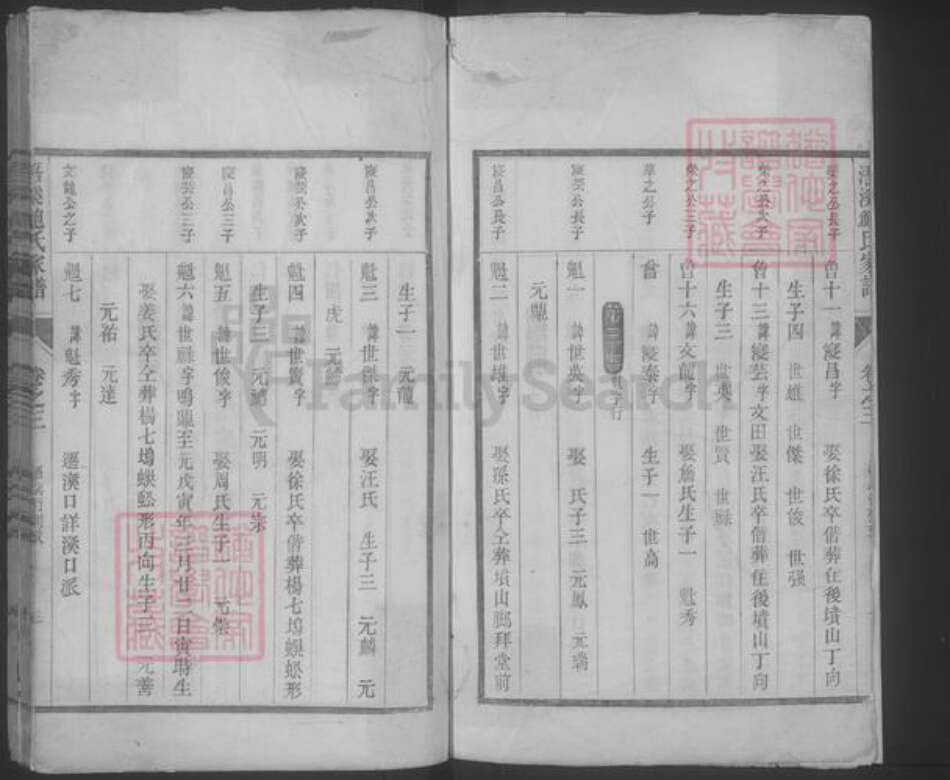 榮之公長子 魯十一 諱縱昌字 娶徐氏卒偕葬在後墳山丁向
生子四 世雄 世傑 世俊 世强
榮之公次子 魯十三 諱縱芸字文田娶汪氏卒偕葬在後墳山丁向
生子三 世英 世賢 世祿
榮之公三子 魯十六 諱文龍字 娶詹氏生子一 魁秀
華之公子 諱縱泰字 生子一 世高
縱芸公長子 魁一 諱世英字 娶 氏子三 元鳳 元瑞
元
縱昌公長子 魁二 諱世雄字 娶孫氏卒仝葬墳山 拜堂前
生子一 元龍
縱昌公次子 魁三 諱世傑字 娶汪氏 生子三 元麟 元
虎 元
縱芸公次子 魁四 諱世賢字 娶徐氏卒偕葬楊七塢蜈蚣形
生子三 元 元明 元
縱昌公三子 魁五 諱世俊字 娶周氏生子一
縱芸公三子 魁六 諱世祿字鳴 至元戊寅年三月廿二日寅時生
娶姜氏卒仝葬楊七塢蜈蚣形丙向生子三 元善
元祐 元達
文龍公之子 魁七 諱魁秀字 遷溪口詳溪口派
氏家譜 卷之三
FamilySearch